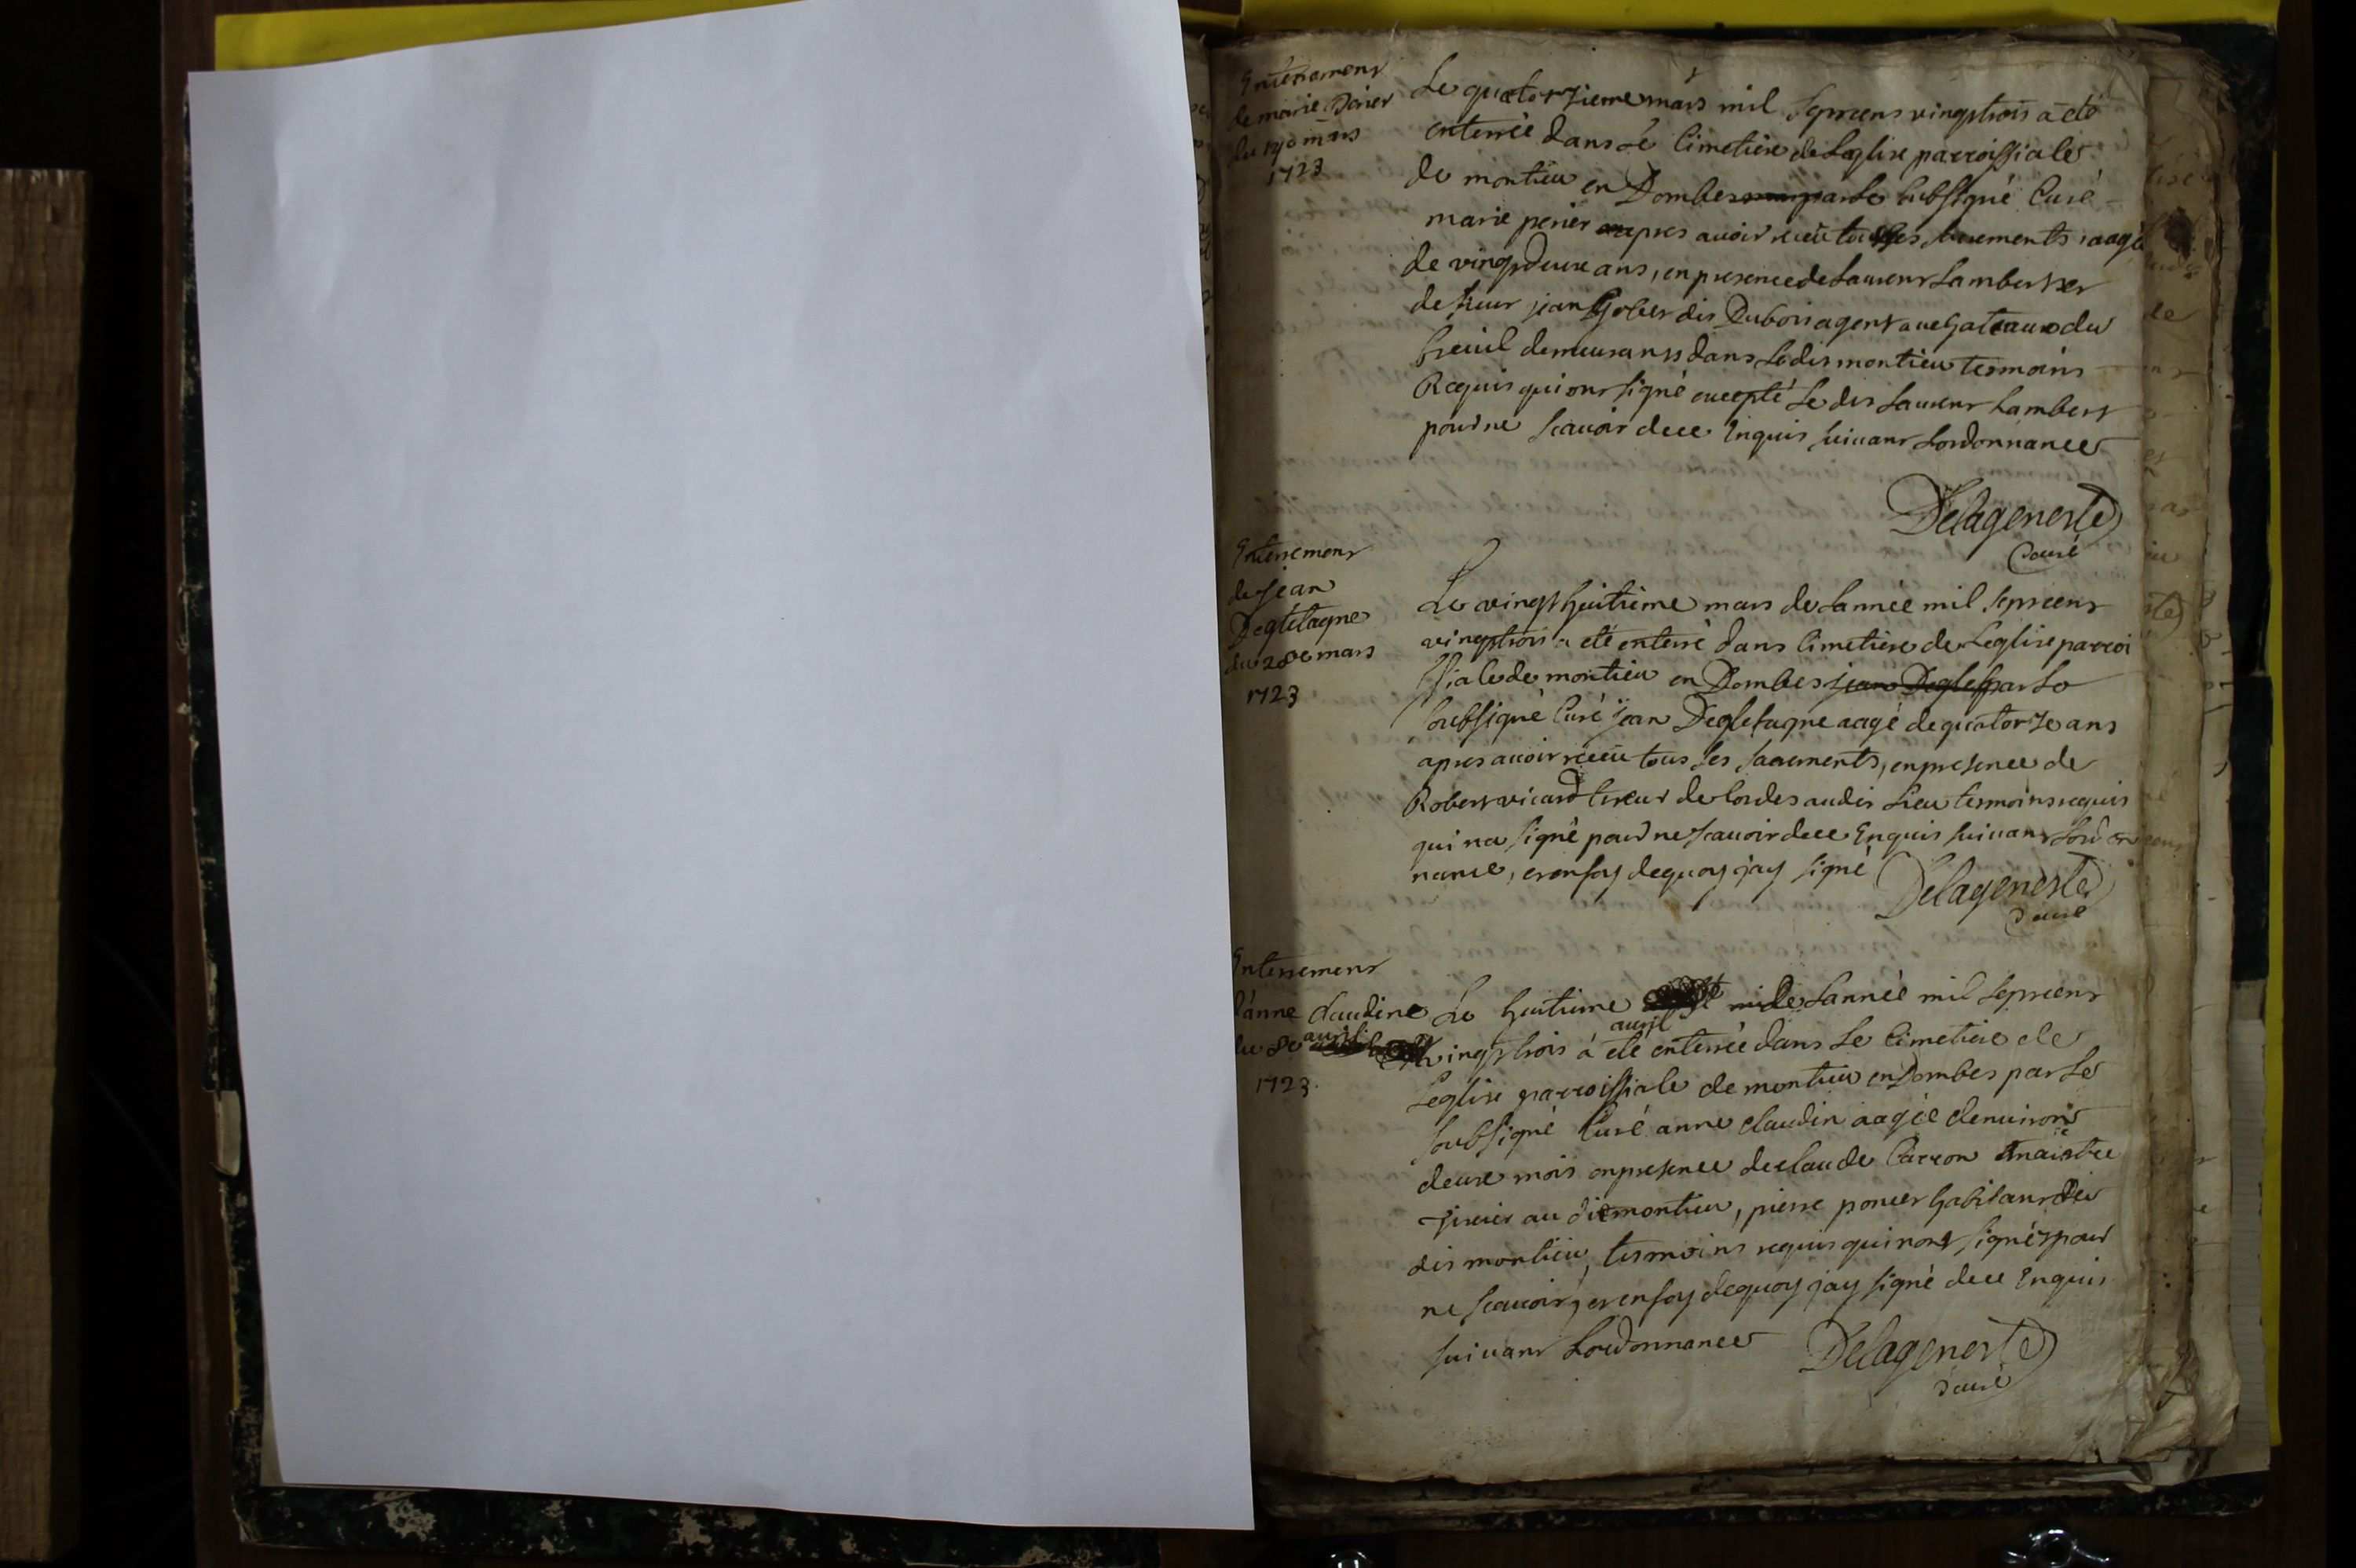 Enterrement
de marie Perier
du 14e mars
1723
Le quatorzieme mars mil septcens vingttrois a eté
enterrée dans Le Cimetiere de Leglise parroissiale
de montieu en Dombes par Le subsigné Curé
marie perier apres avoir receu tous ses sacrements, aagée
de vingtdeux ans, en presence de Laurent Lambert et
de sieur jean dit Dubois agent au chateau du
breuil demeurants dans Ledit montieu tesmoins
Requis qui ont signé excepté Le dit Laurent Lambert
pour ne scavoir de ce Enquis suivant Lordonnance
Delageneste
Curé
Enterrement
de jean
Degletagne
du 28e mars
1723
Le vingt huitieme mars de Lannée mil septcent
vingttrois a eté enterré dans Cimetiere de Leglise parroi
ssiale de montieu en Dombes jean Degles par Le
soubsigné Curé jean Degletagne aagé de quatorze ans
apres avoir receu tous ses sacrements, en presence de
Robert vicard tireur de cordes audit Lieu tesmoins requis
qui na signé pour ne scavoir de ce Enquis suivant Lordon
nance, et en foy de quoy jay signé
Delageneste
Curé
Enterrement
d'anne Claudine
du 8e avril
1723.
Le huitieme avril de Lannée mil septcent
vingt trois a eté enterrée dans Le Cimetiere de
Leglise parroissiale de montieu en Dombes par Le
soubsigné Curé anne claudin aagée denviron
deux mois en presence de claude Carron maistre
au dit montieu, pierre poncet habitant du
dit montieu, tesmoins requis qui nont signés pour
ne scavoir, et en foy de quoy jay signé de ce Enquis
suivant Lordonnance
Delageneste
Curé